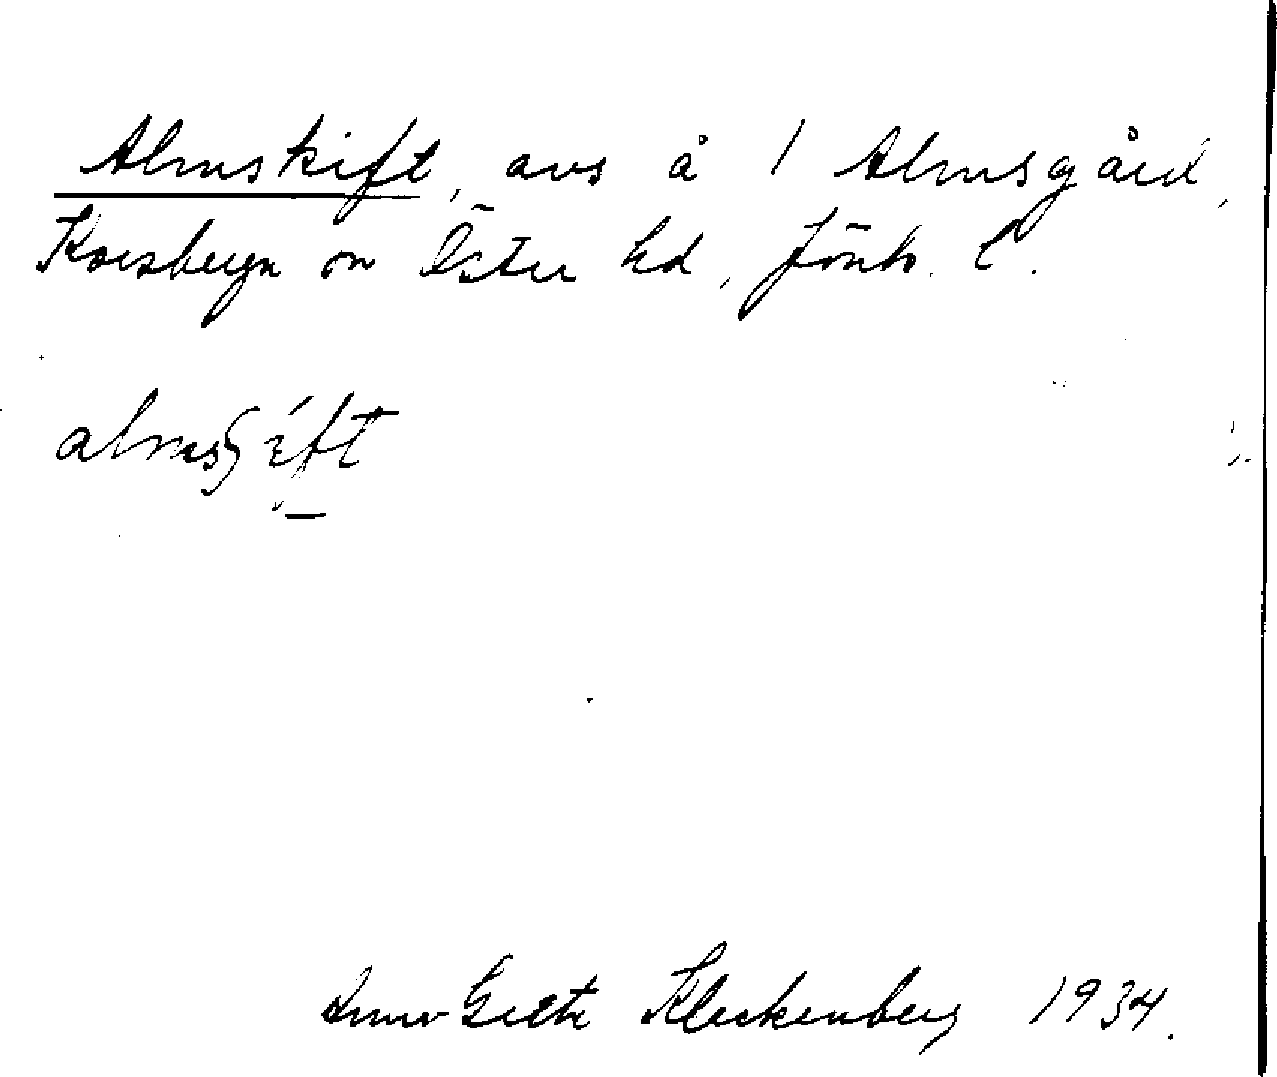 Almskift, avs å 1 Almsgård,
Korsberga sn Östra hd, Jönk. l.
almsʃift
Kleckenberg 1934.